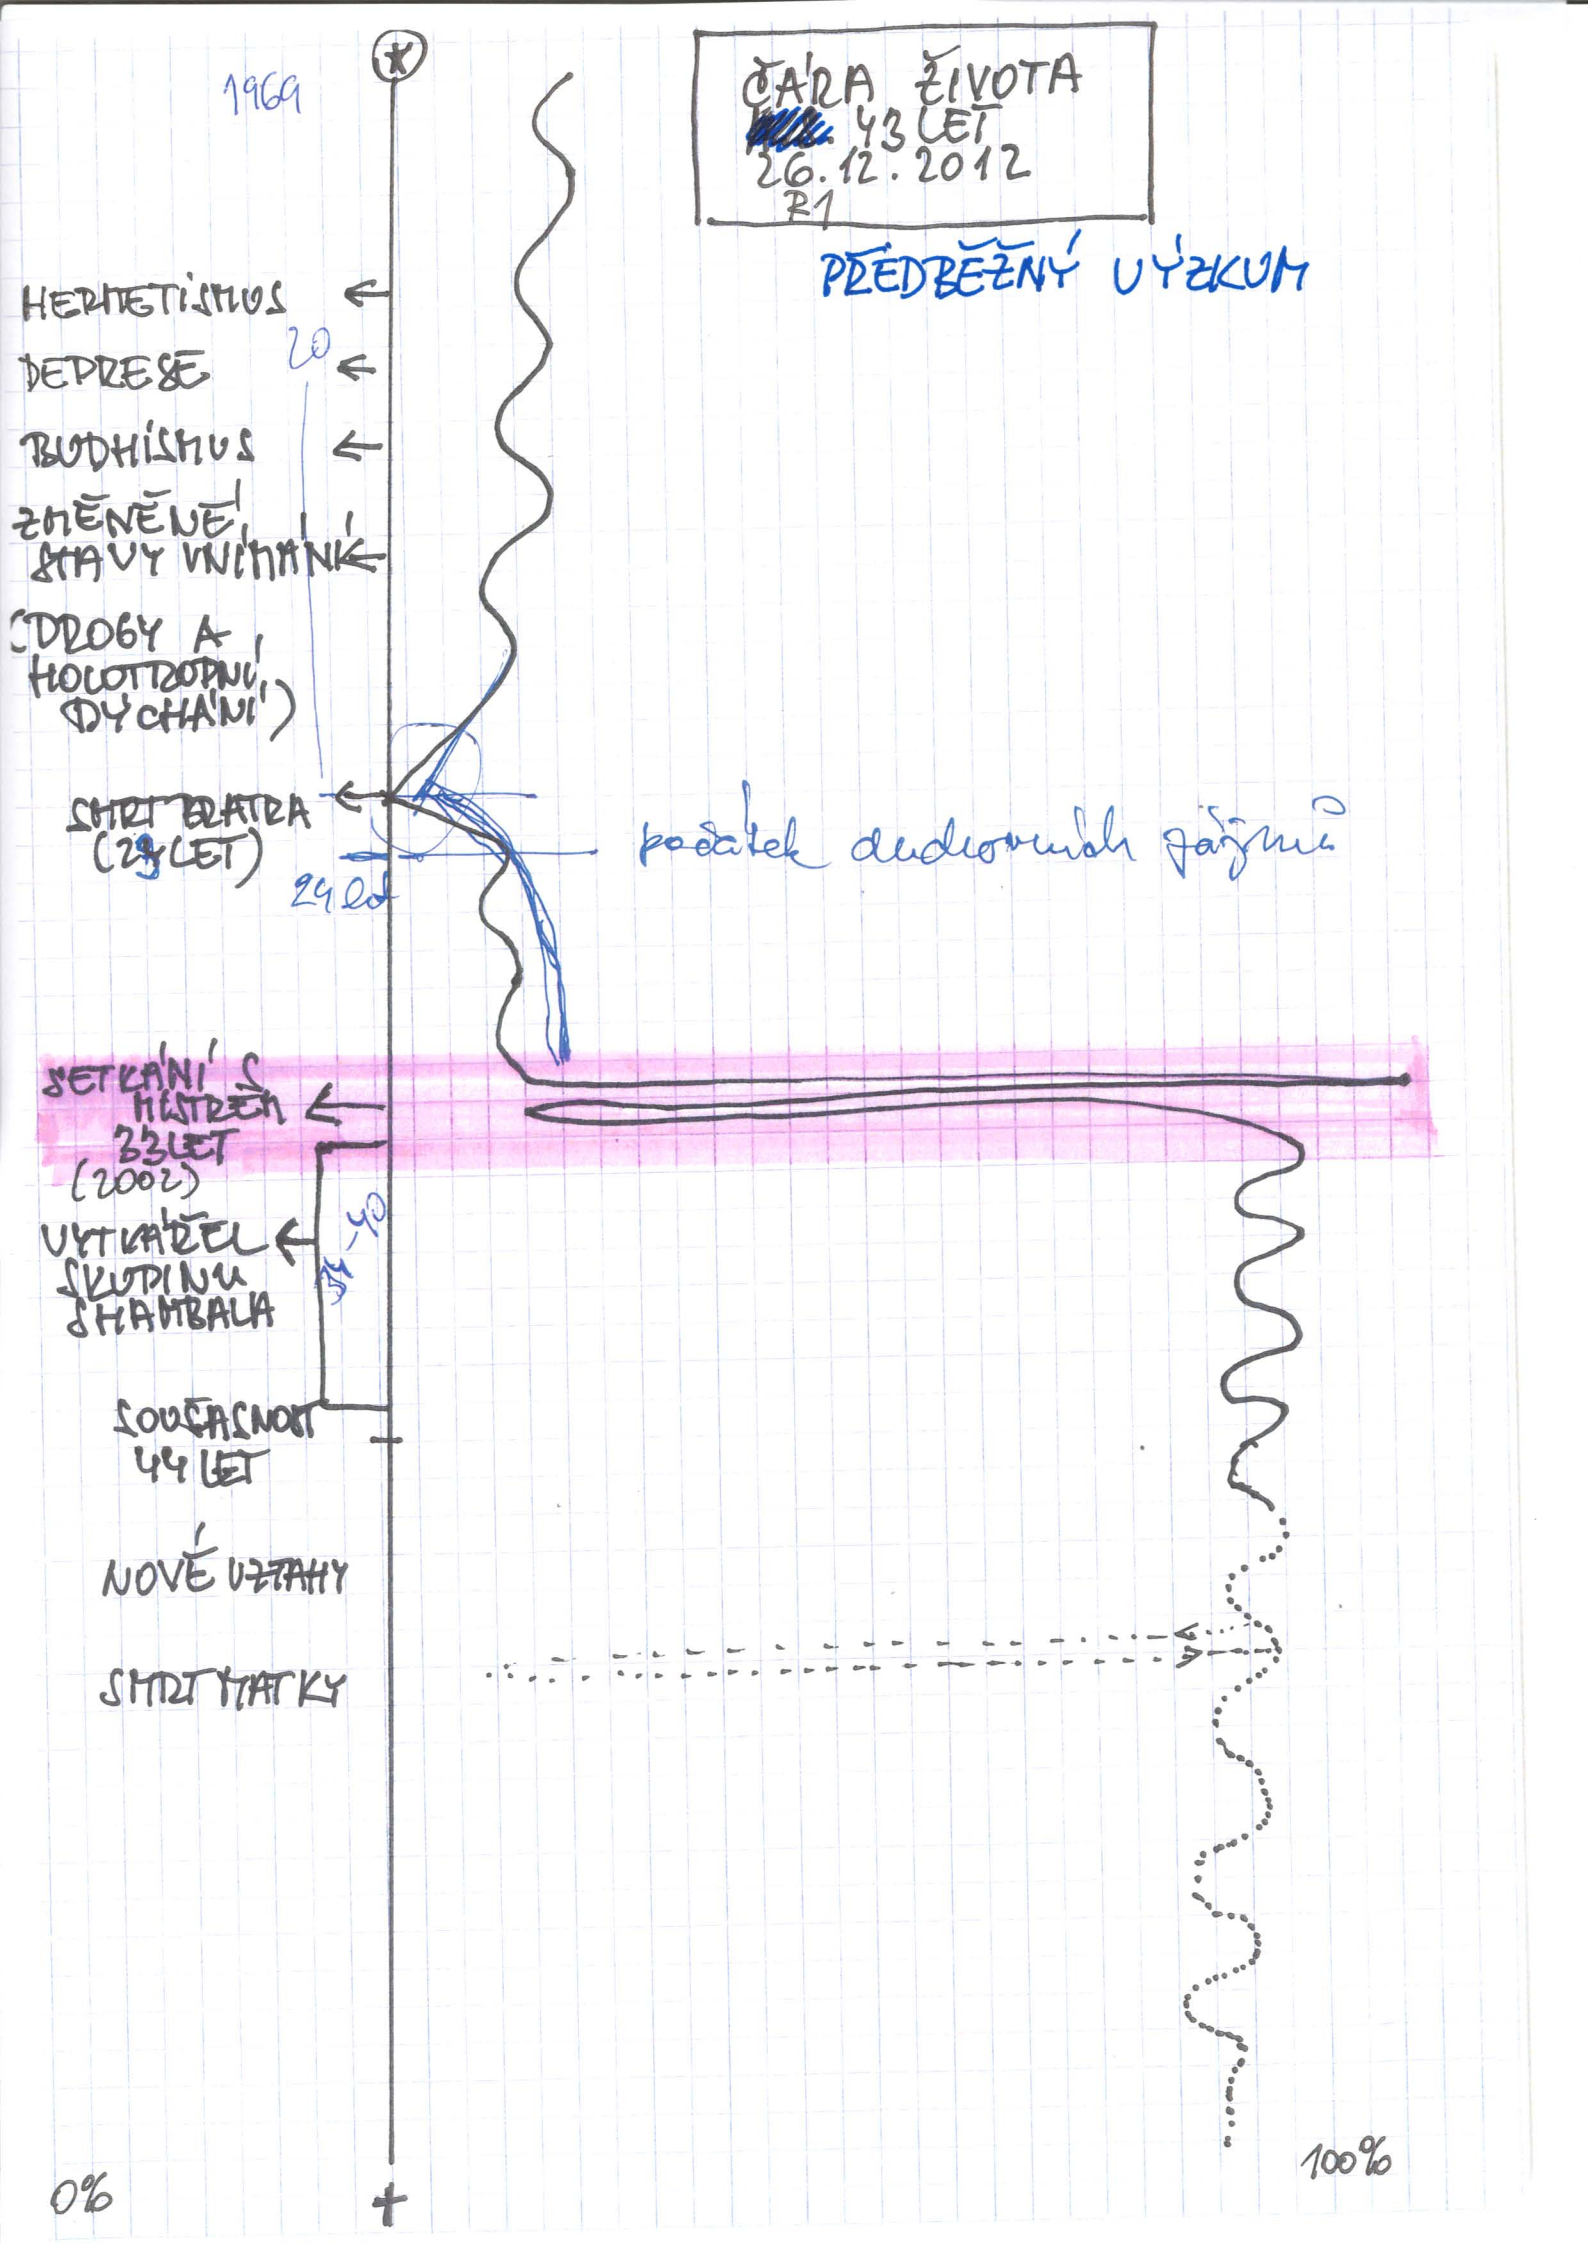 1969
ČÁRA ŽIVOTA
43 LET
26.12.2012
R1
PŘEDBĚŽNÝ VÝZKUM
HERMETISMUS
20
DEPRESE
BUDHISMUS
ZMĚNĚNÉ
STAVY VNÍMÁNÍ
(DROGY A
HOLOTROPNÍ
DÝCHÁNÍ)
SMRT BRATRA
(23 LET)
24 let
počátek duchovních zájmů
SETKÁNÍ S
MISTREM
33 LET
(2002)
34-40
VYTVÁŘEL
SKUPINU
SHAMBALA
SOUČASNOST
44 LET
NOVÉ VZTAHY
SMRT MATKY
0%
100%